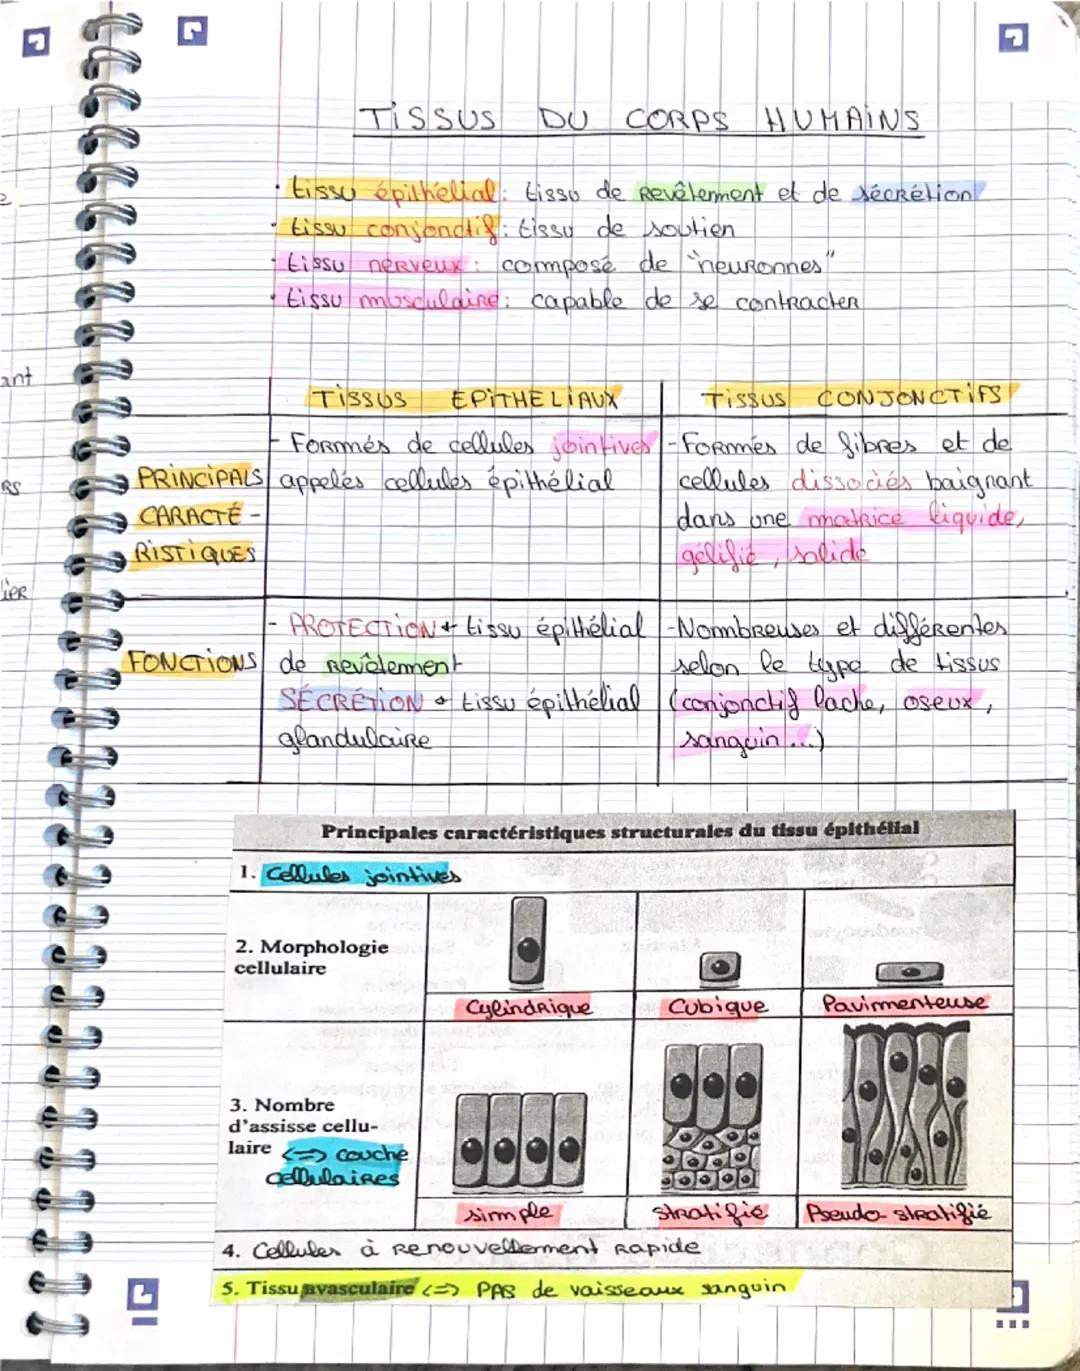 TISSUS DU CORPS HUMAINS
· tissu épithélial : tissu de revêtement et de sécrétion
· tissu conjonctif : tissu de soutien
· tissu nerveux : composé de "neuronnes"
· tissu musculaire : capable de se contracter
TISSUS EPITHELIAUX
TISSUS CONJONCTIFS
PRINCIPALS
CARACTÉ-
RISTIQUES
- Formés de cellules jointives
appelés cellules épithélial
- Formés de fibres et de
cellules dissociés baignant
dans une matrice liquide,
gélifié, solide
FONCTIONS
- PROTECTION → tissu épithélial
de revêtement
SÉCRÉTION → tissu épithélial
glandulaire
- Nombreuses et différentes
selon le type de tissus
(conjonctif lache, oseux,
sanguin...)
Principales caractéristiques structurales du tissu épithélial
1. Cellules jointives
2. Morphologie
cellulaire
Cylindrique
Cubique
Pavimenteuse
3. Nombre
d'assisse cellu-
laire <=> couche
cellulaires
simple
stratifié
Pseudo-stratifié
4. Cellules à renouvellement rapide
5. Tissu avasculaire <=> PAS de vaisseaux sanguin
ant
RS